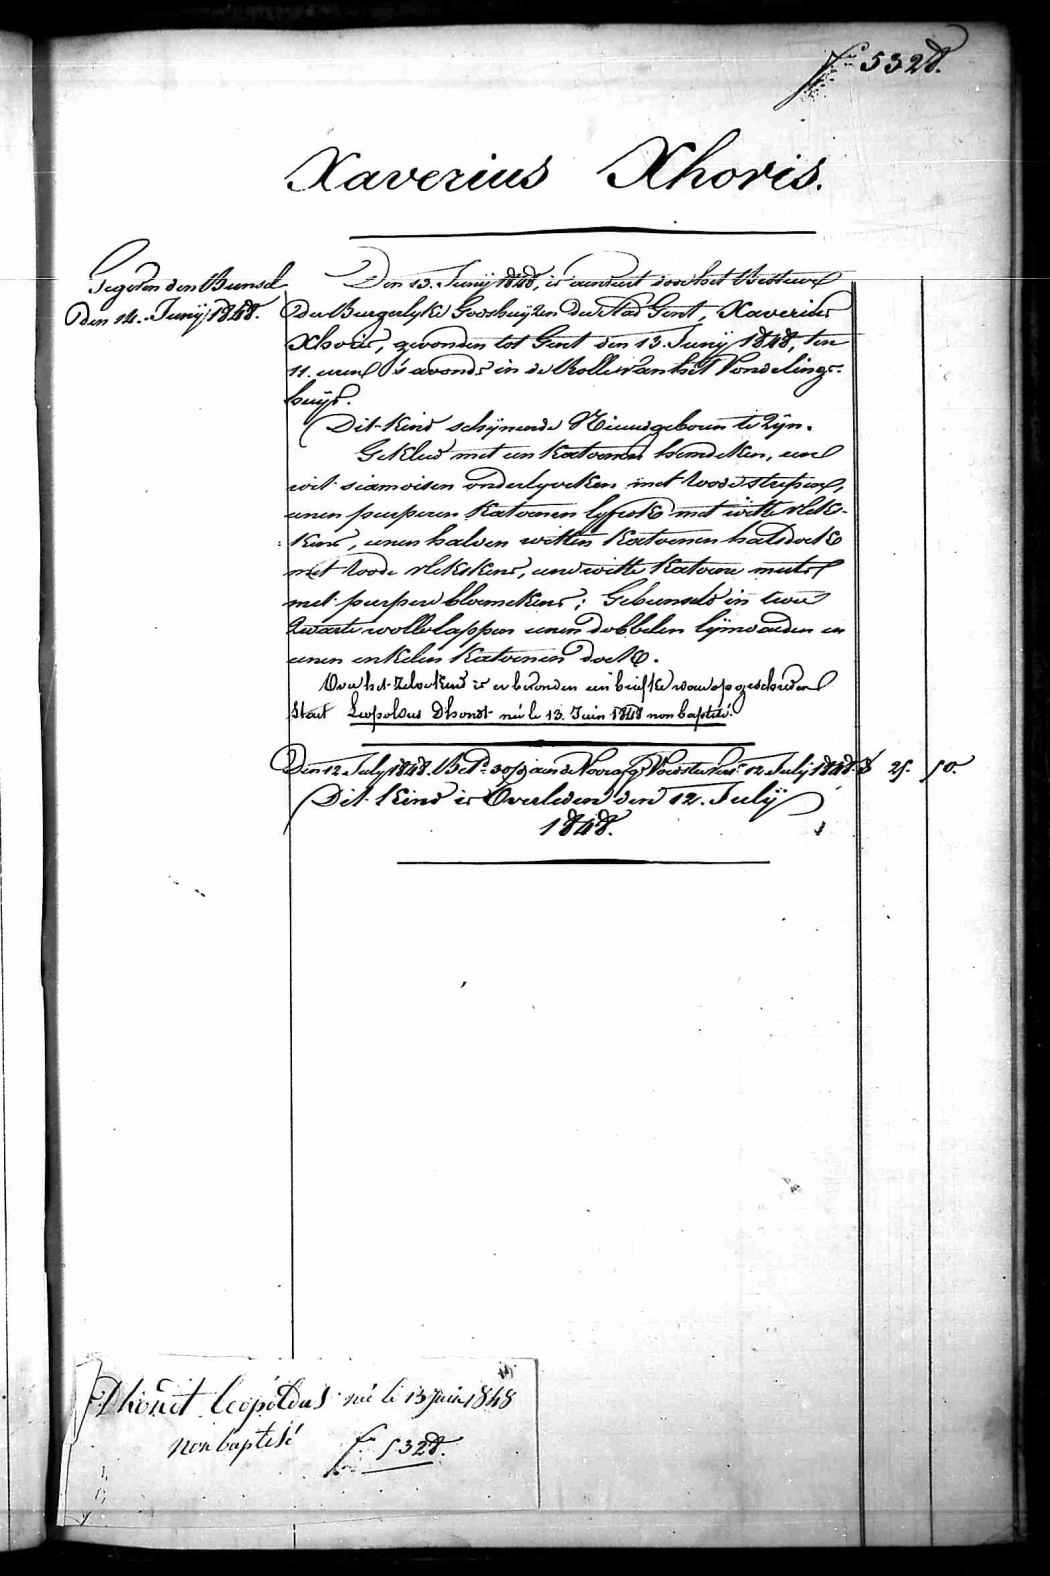 f° 5328.
Xaverius Xhoris.
Gegeven den Bunsel
den 14. Junÿ 1848.
Den 13. Junÿ 1848, is aenveert door het Bestuer
der Burgerlyke Godshuÿzen der stad Gent, Xaverius
Xhoris, gevonden tot Gent den 13. Junÿ 1848, ten
11. uren 's avonds in de Rolle van het Vondelings-
huÿs.
Dit kind schÿnende Nieuwgeboren te zÿn.
Gekleed met een katoenen hemdeken, een
wit siamoisen onderlyveken met roode strepen,
eenen purperen katoenen lyfrok met witte vlek-
kens, eenen halven witten katoenen halsdoek
met roode vlekskens, eene witte katoene muts
met purpere bloemekens; Gebunseld in twee
zwarte wolle lappen eenen dobbelen lÿnwaeden en
eenen enkelen katoenen doek.
Over het zelve kind is er bevonden een briefke waer op geschreven
staet Leopoldus Dhondt né le 13. Juin 1848 non baptisé.
Den 12. July 1848. Bet. 30 aen de Voorg. Voedster 12 July 1848. 25. 50.
Dit kind is Overleden den 12. Julÿ
1848.
Dhondt Leopoldus né le 13 juin 1848
non baptisé
f° 5328.